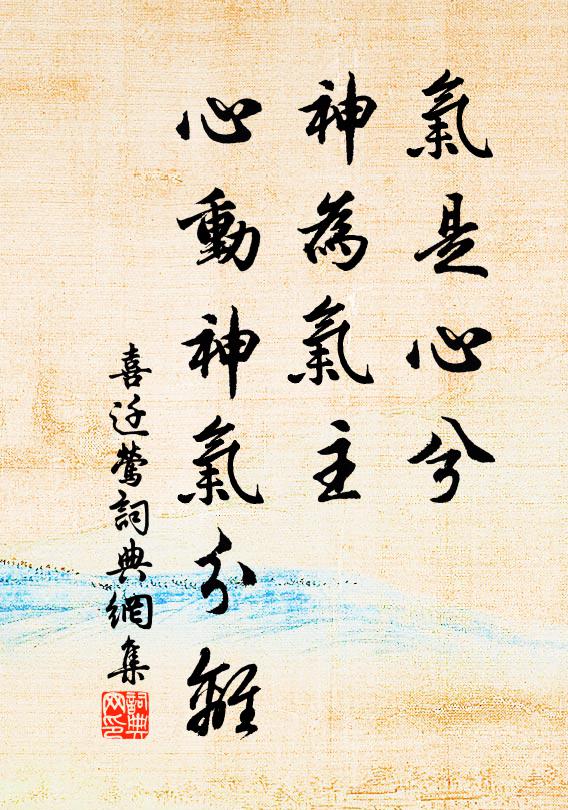 氣是心兮
神為氣主
心動神氣分離
喜迁鶯詞典網集
詞典
网印